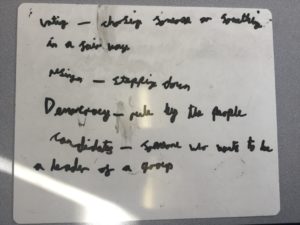 voting – chosing someone or something
in a fair way
resign – stepping down
Democracy – rule by the people
Candidates – someone who wants to be
a leader of a group